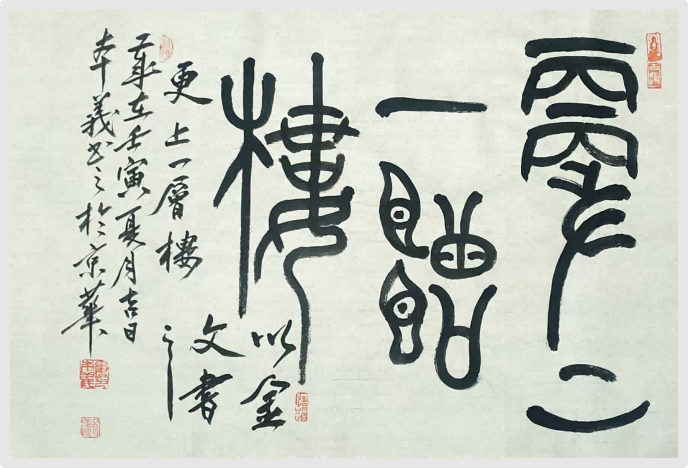 更上
一層
樓
更上一層樓
以金
文書
之
歲在壬寅夏月吉日
本義書之於京華